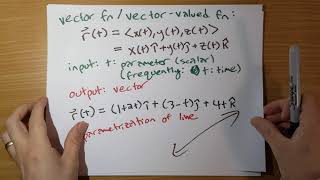 vector fn/vector-valued fn:
r⃗(t) = <x(t), y(t), z(t)>
= x(t)î + y(t)ĵ + z(t)k̂
input: t: parameter (scalar)
(frequently: t: time)
output: vector
r⃗(t) = (1+2t)î + (3-t)ĵ + 4t k̂
parametrization of line